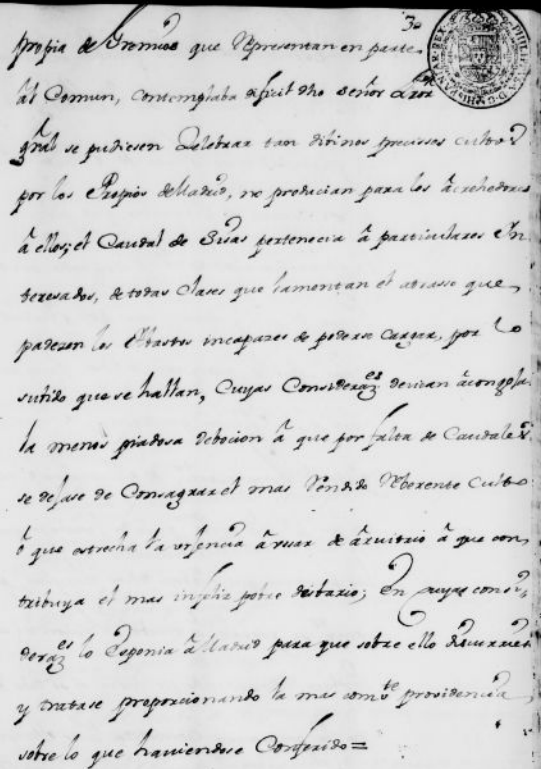 30
propia de Gremios que Representan en parte
al Comun, contemplaba dificil dho Señor Cor.or
gñal se pudiesen Zelebrar tan dibinos precisses cultos
por los Propios de Madrid, no producian para los acrehedores
à ellos; el Caudal de Sisas pertenecia à particulares In
teresados, de todas Clases que lamentan el atrasso que
padezen los Abastos incapazes de poderse cargar, por lo
subido que se hallan, Cuyas Consideraz.es devian acongojar
la menos piadosa debocion à que por falta de Caudales
se dejase de Consagrar el mas Rendido Reberente Culto
ò que estrecha la urjencia à usar de arvitrio à que con
tribuya el mas infeliz pobre desbario; En cuyas consi
deraz.es lo Esponia à Madrid para que sobre ello discurriese
y tratase proporcionando la mas comb.te providencia
sobre lo que haviendose Conferido=